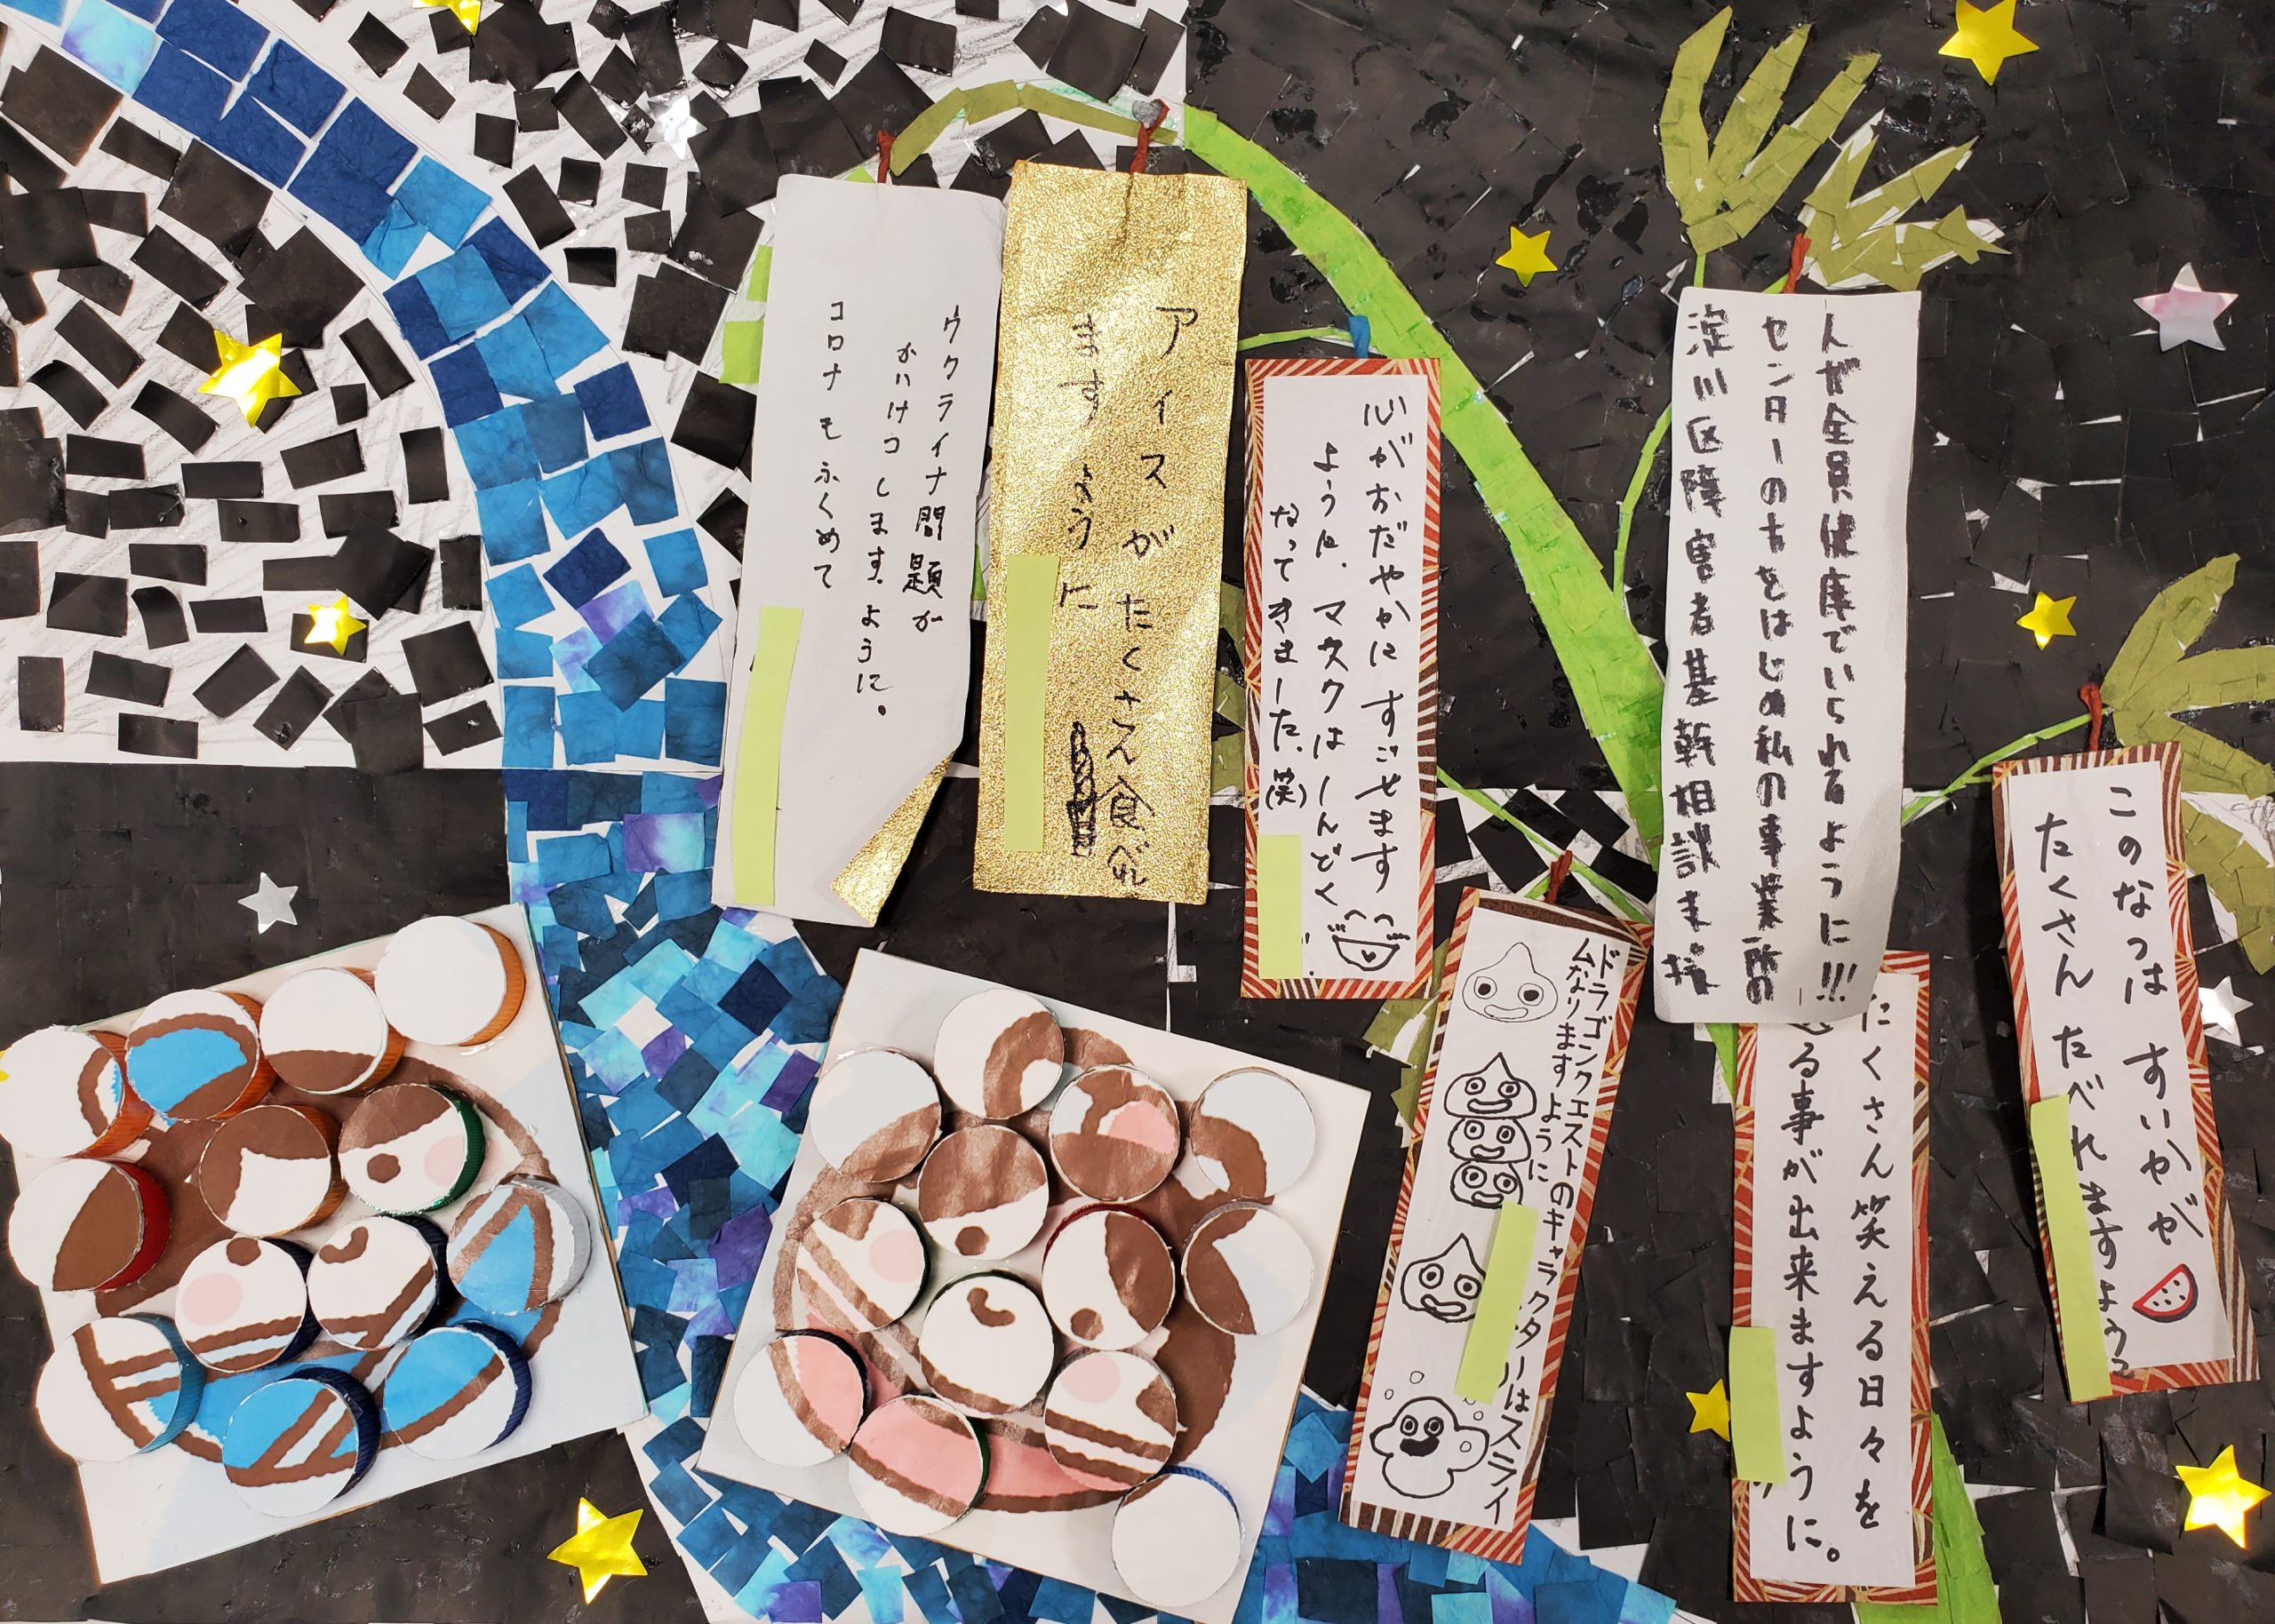 ウクライナ問題が
かいけつします。ように。
コロナもふくめて
アイスがたくさん食べれ
ますように
心がおだやかにすごせます
ように、マスクはしんどく
なってきました、(笑)
淀川区障害者基幹相談支援
センターの方をはじめ私の事業所の
人が全員健康でいられるように!!!
ドラゴンクエストのキャラクターはスライ
ムなりますように
たくさん笑える日々を
る事が出来ますように。
このなつは すいかが
たくさん たべれますように